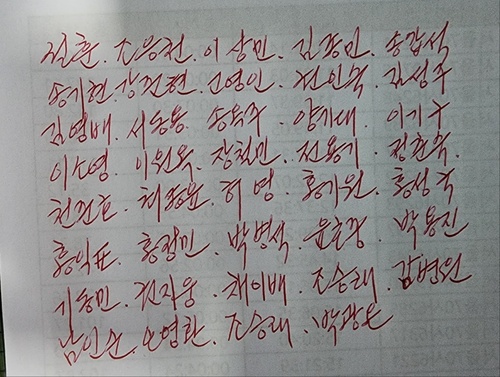 설훈. 조응천. 이상민. 김종민. 송갑석
송기헌. 고영인. 권인숙. 김성주
김영배. 서동용. 송옥주. 양기대. 이기구
이소영. 이원욱. 장철민. 전용기. 정춘숙.
천준호. 최종윤. 허영. 홍기원. 홍성국
홍익표. 홍정민. 박병석. 윤호중. 박용진
기동민. 권지웅. 채이배. 조승래. 김병원
남인순. 오영환. 조승래. 박광온